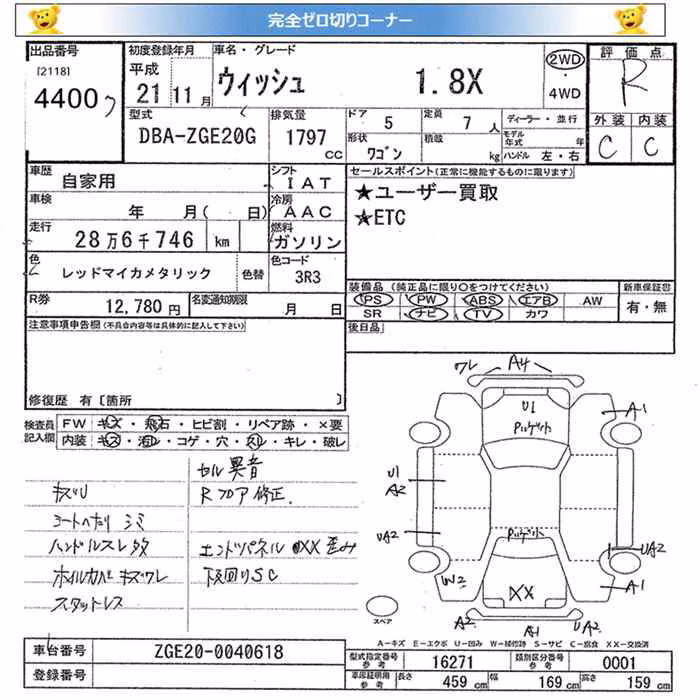 完全ゼロ切りコーナー
出品番号
[2118]
4400
初度登録年月
平成
21年 11月
車名・グレード
ウィッシュ 1.8X
2WD・4WD
評価点
R
外装 内装
C C
型式
DBA-ZGE20G
排気量
1797 CC
ドア 5
定員 7 人
形状 ワゴン
積載 kg
ディーラー・並行
モデル年式 年
ハンドル 左・右
車歴 自家用
シフト IAT
車検 年 月( 日)
冷房 AAC
走行 28万6千746 km
燃料 ガソリン
色 レッドマイカメタリック 色替
色コード 3R3
R券 12,780円
名変通知期限 月 日
セールスポイント(正常に機能するものに限ります)
★ユーザー買取
★ETC
装備品(純正品に限り○をつけてください)
PS PW ABS エアB AW
SR ナビ TV カワ
新車保証書
有・無
後日品
注意事項申告欄(不具合内容等は具体的に記入して下さい)
修復歴 有 [箇所 ]
検査員記入欄
FW キズ・飛石・ヒビ割・リペア跡・×要
内装 キズ・汚レ・コゲ・穴・スレ・キレ・破レ
セル異音
キズU
Rフロア修正.
シートヘタリ シミ
ハンドルスレ多
エンドパネル XX 歪み
ホイルカバーキズワレ
下廻りSC
スタットレス
ワレ A4
U1
A1
U1
A2
UA2
UA2
W2
XX
A1
A2 A1 UA2
スペア
A-キズ E-エクボ U-凹み W-補修跡 S-サビ C-腐食 XX-交換済
車台番号 ZGE20-0040618
登録番号
型式指定番号 参考 16271
類別区分番号 参考 0001
車庫証明用 参考
長さ 459 cm
幅 169 cm
高さ 159 cm